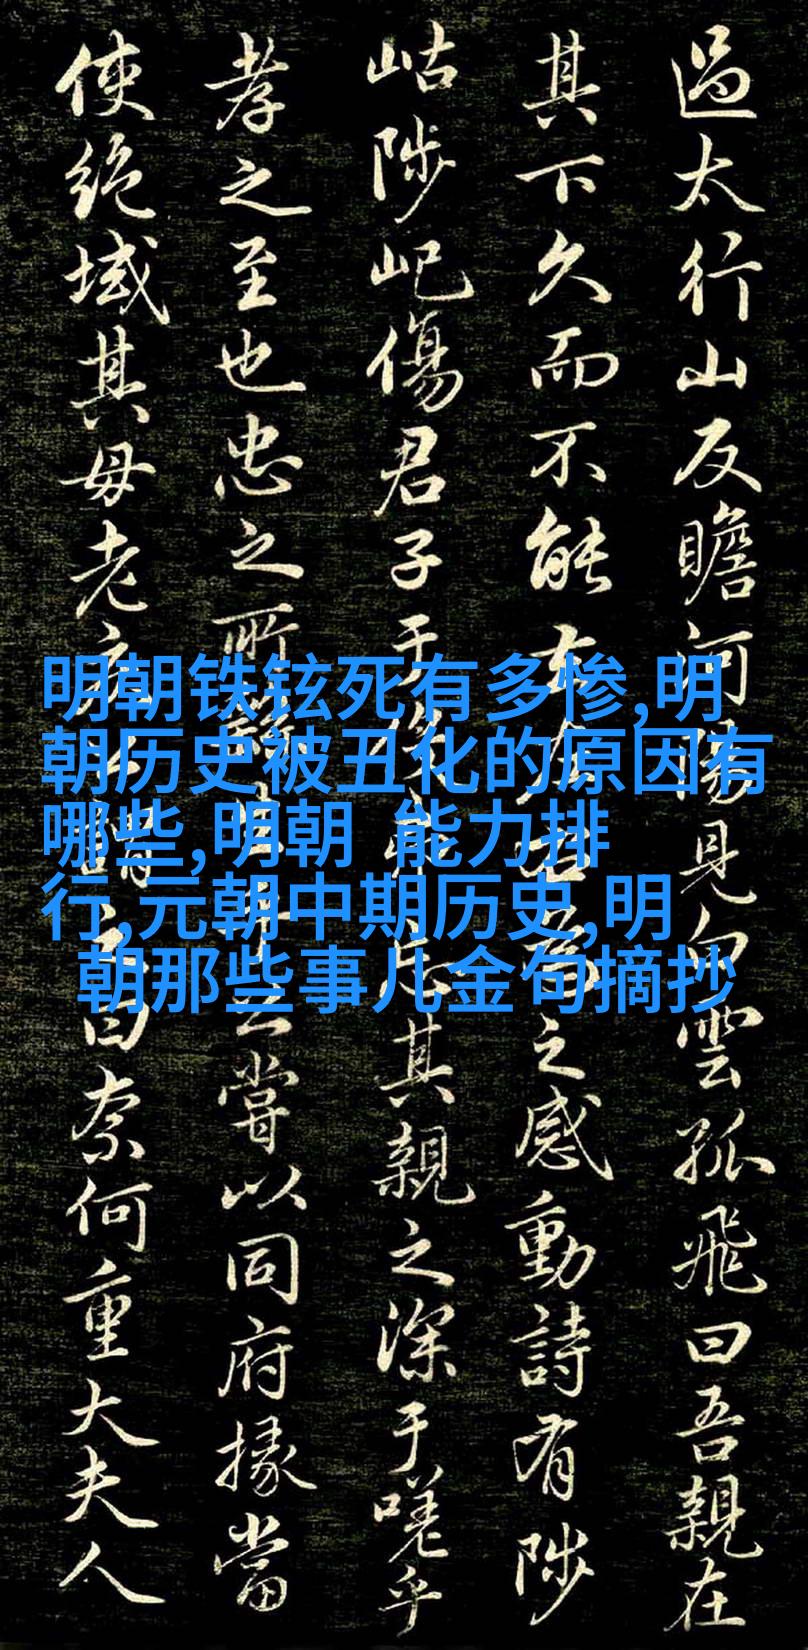 過太行山反瞻河陽見白雲孤飛曰吾親在
其下久而不能之感動詩有陟
岵陟屺傷君子于其親之深于嗟乎
孝之至也忠之所嘗以同府掾當
使絶域其母老曰奈何重大夫人
明朝铁铉死有多惨,明
朝历史被丑化的原因有
哪些,明朝 能力排
行,元朝中期历史,明
朝那些事儿金句摘抄